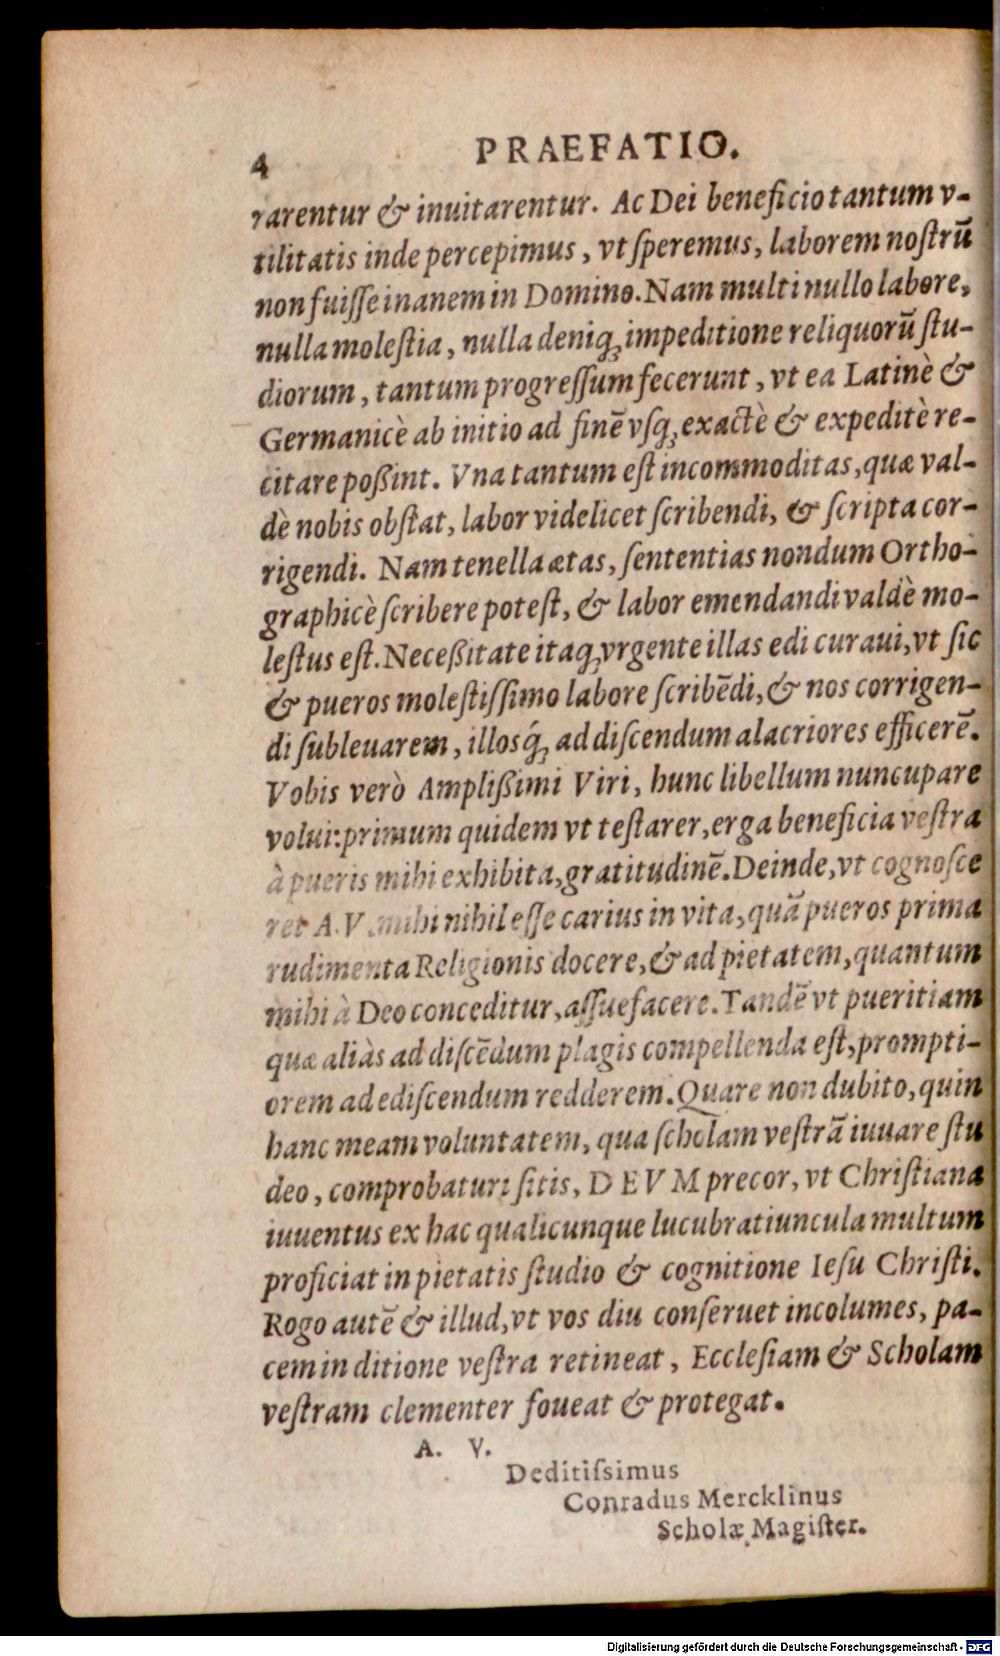 4
PRAEFATIO.
rarentur & inuitarentur. Ac Dei beneficio tantum v-
tilitatis inde percepimus, vt ſperemus, laborem noſtrū
non fuiſſe inanem in Domino. Nam multi nullo labore,
nulla moleſtia, nulla deniqꝫ impeditione reliquorū ſtu-
diorum, tantum progreſſum fecerunt, vt ea Latinè &
Germanicè ab initio ad finē vſqꝫ exactè & expeditè re-
citare poßint. Vna tantum eſt incommoditas, quæ val-
dè nobis obſtat, labor videlicet ſcribendi, & ſcripta cor-
rigendi. Nam tenella ætas, ſententias nondum Ortho-
graphicè ſcribere poteſt, & labor emendandi valdè mo-
leſtus eſt. Neceßitate itaqꝫ vrgente illas edi curaui, vt ſic
& pueros moleſtiſſimo labore ſcribēdi, & nos corrigen-
di ſubleuarem, illosq́ꝫ ad diſcendum alacriores efficerē.
Vobis verò Amplißimi Viri, hunc libellum nuncupare
volui: primum quidem vt teſtarer, erga beneficia veſtra
à pueris mihi exhibita, gratitudinē. Deinde, vt cognoſce
ret A. V. mihi nihil eſſe carius in vita, quā pueros prima
rudimenta Religionis docere, & ad pietatem, quantum
mihi à Deo conceditur, aſſuefacere. Tandē vt pueritiam
quæ aliàs ad diſcēdum plagis compellenda eſt, prompti-
orem ad ediſcendum redderem. Quare non dubito, quin
hanc meam voluntatem, qua ſcholam veſtrā iuuare ſtu
deo, comprobaturi ſitis, DEVM precor, vt Chriſtiana
iuuentus ex hac qualicunque lucubratiuncula multum
proficiat in pietatis ſtudio & cognitione Ieſu Chriſti.
Rogo autē & illud, vt vos diu conſeruet incolumes, pa-
cem in ditione veſtra retineat, Eccleſiam & Scholam
veſtram clementer foueat & protegat.
A. V.
Deditiſsimus
Conradus Mercklinus
Scholæ Magiſter.
Digitalisierung gefördert durch die Deutsche Forschungsgemeinschaft - DFG